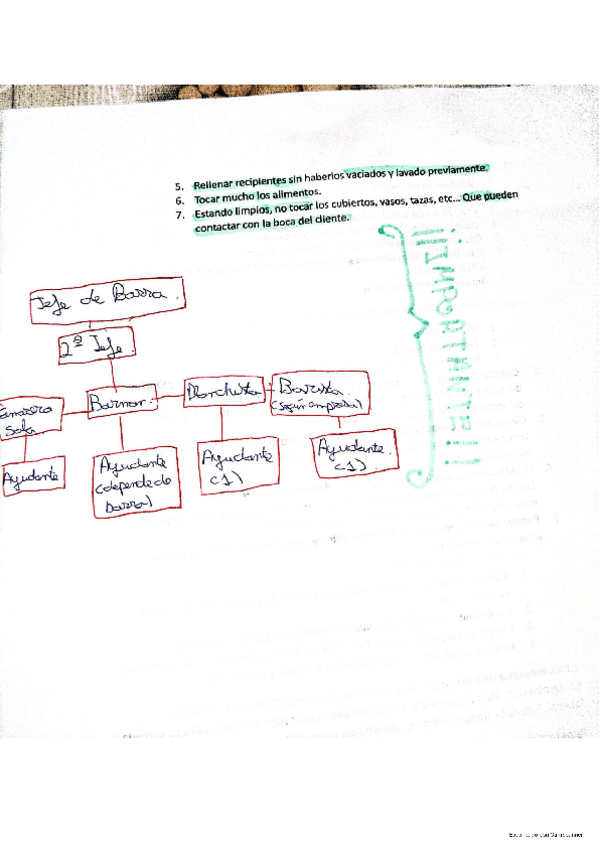 5. Rellenar recipientes sin haberlos vaciados y lavado previamente.
6. Tocar mucho los alimentos.
7. Estando limpios, no tocar los cubiertos, vasos, tazas, etc... Que pueden
contactar con la boca del cliente.
¡¡IMPORTANTE!!
Jefe de Barra.
2º Jefe.
Sala
Barman.
Planchista
Barista
(según empresa)
Ayudante
Ayudante
(depende de
barra)
Ayudante
(1)
Ayudante.
(1).